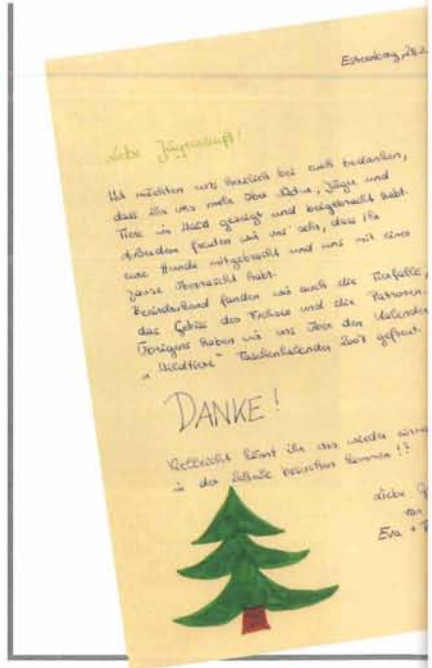 Liebe Jägerschaft!
Wir möchten uns herzlich bei euch bedanken,
dass ihr uns mehr über Natur, Jäger und
Tiere im Wald gezeigt und beigebracht habt.
Außerdem freuten wir uns sehr, dass ihr
eure Hunde mitgebracht und uns mit einer
Jause überrascht habt.
Beeindruckend fanden wir auch die Tierfelle,
das Gebiss des Fuchses und die Patronen.
Übrigens haben wir uns über den Kalender
"Wildtiere" Taschenkalender 2007 gefreut.
DANKE!
Vielleicht könnt ihr uns wieder
in der Schule besuchen kommen!?
Liebe
von
Eva +